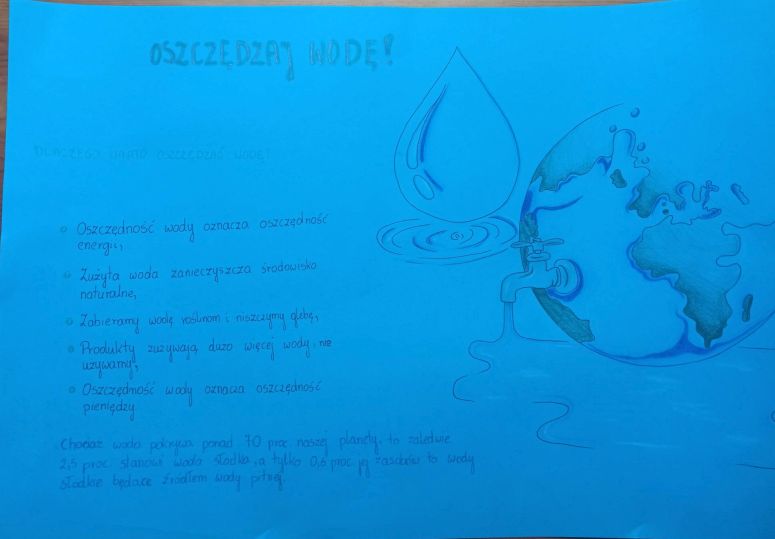 OSZCZĘDZAJ WODĘ!
DLACZEGO WARTO OSZCZĘDZAĆ WODĘ?
Oszczędność wody oznacza oszczędność
energii,
Zużyta woda zanieczyszcza środowisko
naturalne,
Zabieramy wodę roślinom i niszczymy glebę,
Produkty zużywają dużo więcej wody, niż
używamy,
Oszczędność wody oznacza oszczędność
pieniędzy.
Chociaż woda pokrywa ponad 70 proc. naszej planety, to zaledwie
2,5 proc. stanowi woda słodka, a tylko 0,6 proc. jej zasobów to wody
słodkie będące źródłem wody pitnej.